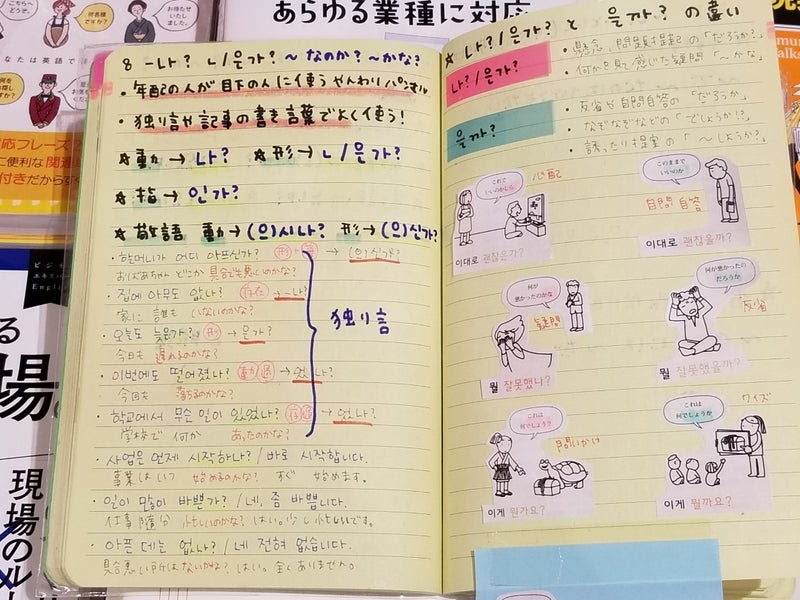 こちらへどうぞ。
何名様ですか?
お待たせいたしました。
あらゆる業種に対応
なたは英語で
応フレーズ
に便利な関連
付きだからす
る
場
現場のル
8 -나? ㄴ/은가? 〜なのか?〜かな?
・年配の人が目下の人に使うやんわりパンマル
・独り言や記事の書き言葉でよく使う!
★動→나? ★形→ㄴ/은가?
★指→인가?
★敬語 動→(으)시나? 形→(으)신가?
・할머니가 어디 아프신가? 形 敬 → (으)신가?
おばあちゃんどこか具合でも悪いのかな?
・집에 아무도 없나? 存在 → -나?
家に誰もいないのかな?
・오늘도 늦은가? 形 → 은가?
今日も遅れるのかな?
・이번에도 떨어졌나? 動 過 → 었나?
今回も落ちるのかな?
・학교에서 무슨 일이 있었나? 存 過 → 었나?
学校で何かあったのかな?
独り言
・사업은 언제 시작하나? / 바로 시작합니다.
事業はいつ始めるのかな? すぐ始めます。
・일이 많이 바쁜가? / 네, 좀 바쁩니다.
仕事随分忙しいのかな? はい。少し忙しいです。
・아픈 데는 없나? / 네 전혀 없습니다.
具合悪い所はないかな? はい。全くありません。
★나?/은가? と 을까? の違い
나?/은가?
・懸念、問題提起の「だろうか?」
・何かを見て感じた疑問「〜かな」
을까?
・反省や自問自答の「だろうか」
・なぞなぞなどの「でしょうか!?」
・誘ったり提案の「〜しようか?」
これでいいのかしら
心配
이대로 괜찮은가?
このままでいいのか
自問自答
이대로 괜찮을까?
何が悪かったのかな
疑問
뭘 잘못했나?
何が悪かったのだろうか
反省
뭘 잘못했을까?
これは何でしょう?
問いかけ
이게 뭔가요?
これは何でしょうか
クイズ
이게 뭘까요?